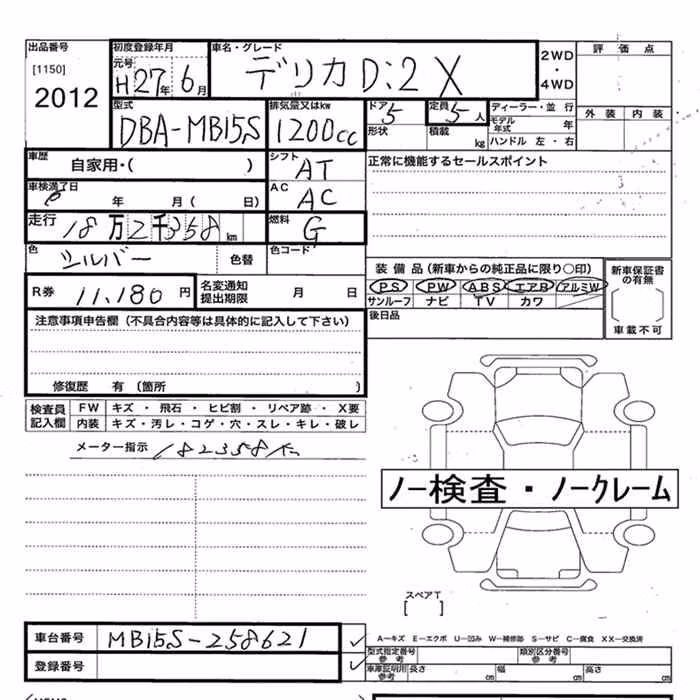 出品番号 初度登録年月 車名・グレード 2WD・4WD 評価点
[1150] 元号 H27年6月 デリカD:2 X
2012
型式 排気量又はkw ドア 5 定員 5人 ディーラー・並行
DBA-MB15S 1200cc 形状 積載 kg モデル年式 年 外装 内装
ハンドル 左・右
車歴 自家用・( ) シフト AT 正常に機能するセールスポイント
車検満了日 年 月( 日) AC AC
走行 18万2千358km 燃料 G
色 シルバー 色替 色コード
装備品(新車からの純正品に限り○印) 新車保証書の有無
R券 11,180円 名変通知提出期限 月 日 PS PW ABS エアB アルミW
サンルーフ ナビ TV カワ
後日品 車載不可
注意事項申告欄(不具合内容等は具体的に記入して下さい)
修復歴 有(箇所 )
検査員記入欄 FW キズ・飛石・ヒビ割・リペア跡・X要
内装 キズ・汚レ・コゲ・穴・スレ・キレ・破レ
メーター指示 182358K
ノー検査・ノークレーム
スペアT
[ ]
車台番号 MB15S-258621
A-キズ E-エクボ U-凹み W-補修跡 S-サビ C-腐食 XX-交換済
型式指定番号 参考 類別区分番号 参考
登録番号 車庫証明用 参考 長さ cm 幅 cm 高さ cm